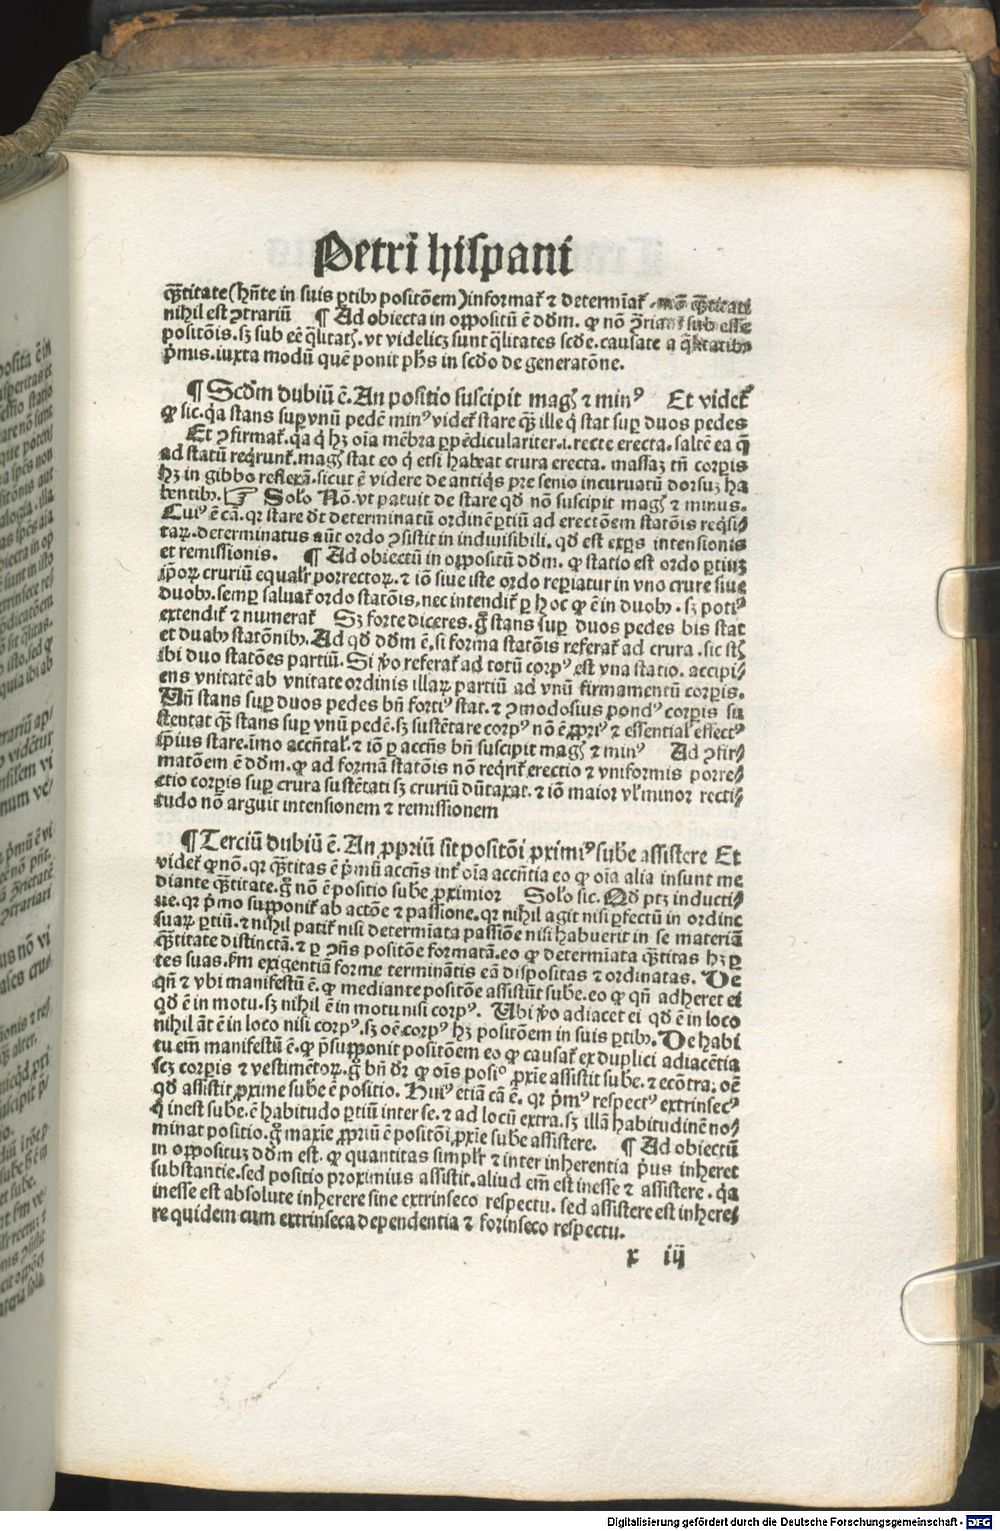 Petri hispani
q̄titate (hn̄te in suis ꝑtibꝰ positōem) informat̄ ⁊ determīat̄
nihil est ꝯtrariū ¶ Ad obiecta in oppositū ē dōm. ꝙ nō
positōis. sꝫ sub eē q̄litatꝭ. vt videlicꝫ sunt q̄litates scd̄e. causate a
p̄mus. iuxta modū quē ponit ph̄s in scd̄o de generatōne.
¶ Scd̄m dubiū ē. An positio suscipit magꝭ ⁊ minꝰ Et videt̄
ꝙ sic. q̇a stans suꝑ vnū pedē minꝰ videt̄ stare q̄ꝫ ille q̇ stat suꝑ duos pedes
Et ꝯfirmat̄. q̇a q̇ hꝫ oīa mēbra ꝑpēdiculariter .i. recte erecta. saltē ea q̄
ad statū req̇runt̄. magꝭ stat eo q̇ etsi habeat crura erecta. massaꝫ tn̄ corꝑis
hꝫ in gibbo reflexā. sicut ē videre de antiq̇s pre senio incuruatū dorsuꝫ ha
bentibꝰ. ☞ Solo Nō. vt patuit de stare qd̄ nō suscipit magꝭ ⁊ minus.
Cuiꝰ ē cā. qꝛ stare dīt determinatū ordinē ꝑtiū ad erectōem statōis req̇si⸗
taꝝ. determinatus aūt ordo ꝯsistit in indiuisibili. qd̄ est exꝑs intensionis
et remissionis. ¶ Ad obiectū in oppositū dōm. ꝙ statio est ordo ꝑtiuꝫ
ip̄oꝝ cruriū equalr̄ porrectoꝝ. ⁊ iō siue iste ordo reꝑiatur in vno crure siue
duobꝰ. semꝑ saluat̄ ordo statōis, nec intendit̄ ꝑ hoc ꝙ ē in duobꝰ. sꝫ potiꝰ
extendit̄ ⁊ numerat̄ Sꝫ forte diceres. g̊ stans suꝑ duos pedes bis stat
et duabꝰ statōnibꝰ. Ad qd̄ dōm ē. si forma statōis referat̄ ad crura. sic st̄
ibi duo statōes partiū. Si ꝟo referat̄ ad totū corpꝰ est vna statio. accipi⸗
ens vnitatē ab vnitate ordinis illaꝝ partiū ad vnū firmamentū corꝑis.
Un̄ stans suꝑ duos pedes bn̄ fortiꝰ stat. ⁊ ꝯmodosius pondꝰ corꝑis su
stentat q̄ꝫ stans suꝑ vnū pedē. sꝫ sustētare corpꝰ nō ē ꝓpriꝰ ⁊ essential̄ effectꝰ
ip̄ius stare. īmo accn̄tal̄. ⁊ iō ꝑ accn̄s bn̄ suscipit magꝭ ⁊ minꝰ Ad ꝯfir⸗
matōem ē dōm. ꝙ ad formā statōis nō req̇rit̄ erectio ⁊ vniformis porre⸗
ctio corꝑis suꝑ crura sustētati sꝫ cruriū dūtaxat. ⁊ iō maior vl̓ minor recti⸗
tudo nō arguit intensionem ⁊ remissionem
¶ Terciū dubiū ē. An ꝓpriū sit positōi ꝓximiꝰ sube assistere Et
videt̄ ꝙ nō. qꝛ q̄titas ē p̄mū accn̄s int̄ oīa accn̄tia eo ꝙ oīa alia insunt me
diante q̄titate. g̊ nō ē positio sube ꝓximior Solo sic. Qd̄ ptꝫ inducti⸗
ue. qꝛ p̄mo supponit̄ ab actōe ⁊ passione. qꝛ nihil agit nisi ꝑfectū in ordine
suaꝝ ꝑtiū. ⁊ nihil patit̄ nisi determiata passiōe nisi habuerit in se materiā
q̄titate distinctā. ⁊ ꝑ ꝯn̄s positōe formatā. eo ꝙ determiata q̄titas hꝫ ꝑ
tes suas. ẜm exigentiā forme terminātis eā dispositas ⁊ ordinatas. De
qn̄ ⁊ vbi manifestū ē. ꝙ mediante positōe assistūt sube. eo ꝙ qn̄ adheret ei
qd̄ ē in motu. sꝫ nihil ē in motu nisi corpꝰ. Ubi ꝟo adiacet ei qd̄ ē in loco
nihil āt ē in loco nisi corpꝰ. sꝫ oē corpꝰ hꝫ positōem in suis ꝑtibꝰ. De habi
tu em̄ manifestū ē. ꝙ p̄supponit positōem eo ꝙ causat̄ ex duplici adiacētia
scꝫ corꝑis ⁊ vestimētoꝝ. g̊ bn̄ dr̄ ꝙ oīs posiº ꝓxīe assistit sube. ⁊ ecōtra. oē
qd̄ assistit ꝓxime sube ē positio. Huiꝰ etiā cā ē. qꝛ p̄mꝰ respectꝰ extrinsecꝰ
q̇ inest sube. ē habitudo ꝑtiū inter se. ⁊ ad locū extra. sꝫ illā habitudinē no⸗
minat positio. g̊ maxīe ꝓpriū ē positōi ꝓxīe sube assistere. ¶ Ad obiectū
in opposituꝫ dōm est. ꝙ quantitas simplr̄ ⁊ inter inherentia p̄us inheret
substantie. sed positio proximius assistit. aliud em̄ est inesse ⁊ assistere. q̇a
inesse est absolute inherere sine extrinseco respectu. sed assistere est inhere⸗
re quidem cum extrinseca dependentia ⁊ forinseco respectu.
x iij
Digitalisierung gefördert durch die Deutsche Forschungsgemeinschaft - DFG